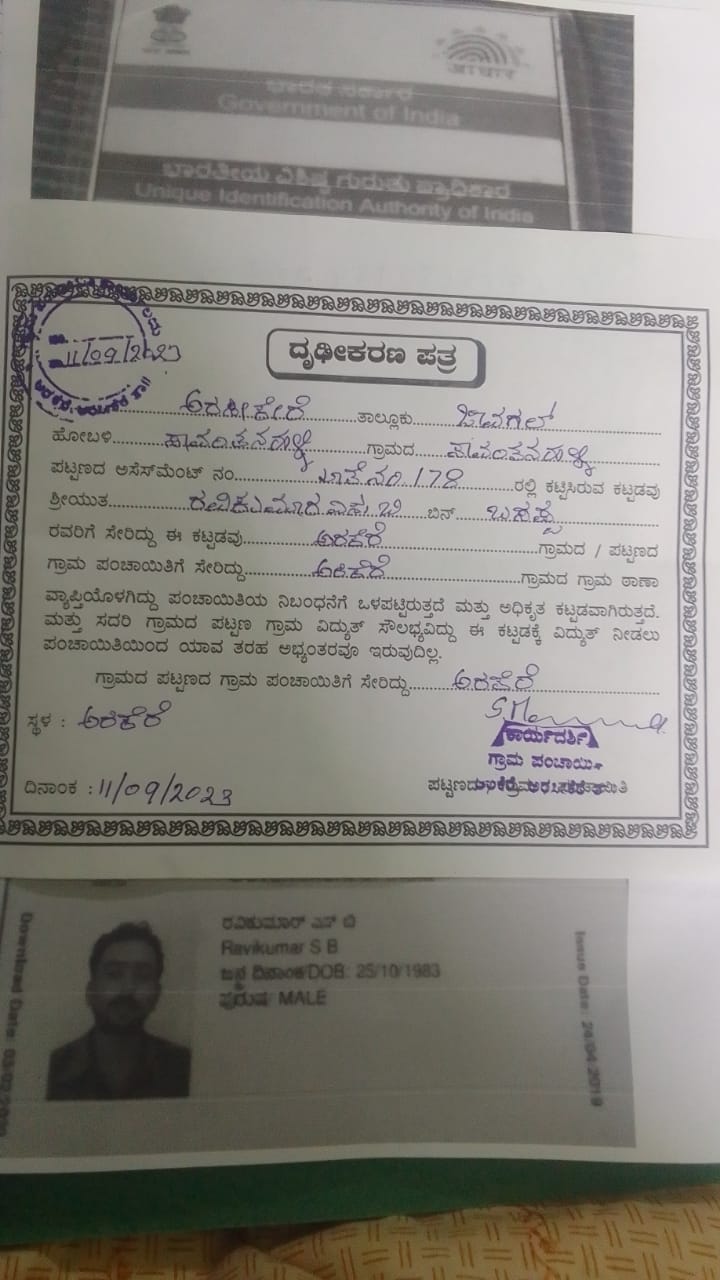 आधार
ಭಾರತ ಸರ್ಕಾರ
Government of India
ಭಾರತೀಯ ವಿಶಿಷ್ಟ ಗುರುತು ಪ್ರಾಧಿಕಾರ
Unique Identification Authority of India
11/09/2023
ದೃಢೀಕರಣ ಪತ್ರ
ಅರಸೀಕೆರೆ ತಾಲ್ಲೂಕು ಜಾವಗಲ್
ಹೋಬಳಿ ಗ್ರಾಮದ
ಪಟ್ಟಣದ ಅಸೆಸ್‌ಮೆಂಟ್ ನಂ. 178 ರಲ್ಲಿ ಕಟ್ಟಿಸಿರುವ ಕಟ್ಟಡವು
ಶ್ರೀಯುತ ಬಿನ್
ರವರಿಗೆ ಸೇರಿದ್ದು ಈ ಕಟ್ಟಡವು ಅರಕೆರೆ ಗ್ರಾಮದ / ಪಟ್ಟಣದ
ಗ್ರಾಮ ಪಂಚಾಯಿತಿಗೆ ಸೇರಿದ್ದು ಅರಕೆರೆ ಗ್ರಾಮದ ಗ್ರಾಮ ಠಾಣಾ
ವ್ಯಾಪ್ತಿಯೊಳಗಿದ್ದು ಪಂಚಾಯಿತಿಯ ನಿಬಂಧನೆಗೆ ಒಳಪಟ್ಟಿರುತ್ತದೆ ಮತ್ತು ಅಧಿಕೃತ ಕಟ್ಟಡವಾಗಿರುತ್ತದೆ.
ಮತ್ತು ಸದರಿ ಗ್ರಾಮದ ಪಟ್ಟಣ ಗ್ರಾಮ ವಿದ್ಯುತ್ ಸೌಲಭ್ಯವಿದ್ದು ಈ ಕಟ್ಟಡಕ್ಕೆ ವಿದ್ಯುತ್ ನೀಡಲು
ಪಂಚಾಯಿತಿಯಿಂದ ಯಾವ ತರಹ ಅಭ್ಯಂತರವೂ ಇರುವುದಿಲ್ಲ.
ಗ್ರಾಮದ ಪಟ್ಟಣದ ಗ್ರಾಮ ಪಂಚಾಯಿತಿಗೆ ಸೇರಿದ್ದು ಅರಕೆರೆ
ಸ್ಥಳ : ಅರಕೆರೆ
ಕಾರ್ಯದರ್ಶಿ
ಗ್ರಾಮ ಪಂಚಾಯಿ
ದಿನಾಂಕ : 11/09/2023
ರವಿಕುಮಾರ್ ಎಸ್ ಬಿ
Ravikumar S B
ಜನ್ಮ ದಿನಾಂಕ/DOB: 25/10/1983
ಪುರುಷ/ MALE
Issue Date: 24/04/2019
Download Date: